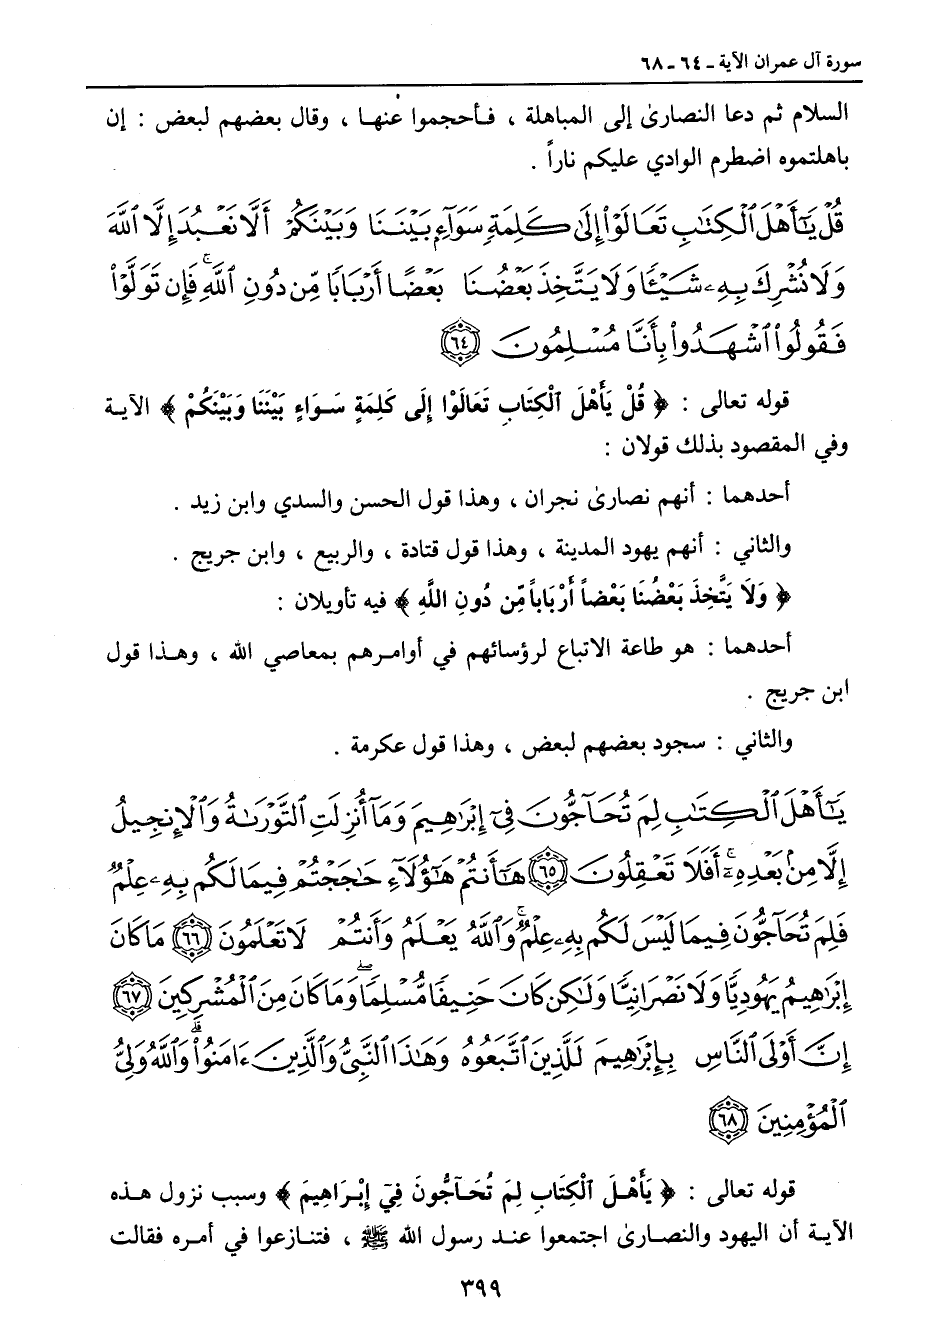 سورة آل عمران الآية ـ ٦٤ ـ ٦٨
السلام ثم دعا النصارىٰ إلى المباهلة ، فأحجموا عنها ، وقال بعضهم لبعض : إن
باهلتموه اضطرم الوادي عليكم ناراً .
قُلْ يَٰٓأَهْلَ ٱلْكِتَٰبِ تَعَالَوْا۟ إِلَىٰ كَلِمَةٍ سَوَآءٍۭ بَيْنَنَا وَبَيْنَكُمْ أَلَّا نَعْبُدَ إِلَّا ٱللَّهَ
وَلَا نُشْرِكَ بِهِۦ شَيْـًٔا وَلَا يَتَّخِذَ بَعْضُنَا بَعْضًا أَرْبَابًا مِّن دُونِ ٱللَّهِ ۚ فَإِن تَوَلَّوْا۟
فَقُولُوا۟ ٱشْهَدُوا۟ بِأَنَّا مُسْلِمُونَ ٦٤
قوله تعالى : ﴿ قُلْ يَأَهْلَ الْكِتَابِ تَعَالَوْا إِلَى كَلِمَةٍ سَوَاءٍ بَيْنَنَا وَبَيْنَكُمْ ﴾ الآية
وفي المقصود بذلك قولان :
أحدهما : أنهم نصارىٰ نجران ، وهذا قول الحسن والسدي وابن زيد .
والثاني : أنهم يهود المدينة ، وهذا قول قتادة ، والربيع ، وابن جريج .
﴿ وَلَا يَتَّخِذَ بَعْضُنَا بَعْضاً أَرْبَاباً مِّن دُونِ اللَّهِ ﴾ فيه تأويلان :
أحدهما : هو طاعة الاتباع لرؤسائهم في أوامرهم بمعاصي الله ، وهذا قول
ابن جريج .
والثاني : سجود بعضهم لبعض ، وهذا قول عكرمة .
يَٰٓأَهْلَ ٱلْكِتَٰبِ لِمَ تُحَآجُّونَ فِىٓ إِبْرَٰهِيمَ وَمَآ أُنزِلَتِ ٱلتَّوْرَىٰةُ وَٱلْإِنجِيلُ
إِلَّا مِنۢ بَعْدِهِۦٓ ۚ أَفَلَا تَعْقِلُونَ ٦٥ هَٰٓأَنتُمْ هَٰٓؤُلَآءِ حَٰجَجْتُمْ فِيمَا لَكُم بِهِۦ عِلْمٌ
فَلِمَ تُحَآجُّونَ فِيمَا لَيْسَ لَكُم بِهِۦ عِلْمٌ ۚ وَٱللَّهُ يَعْلَمُ وَأَنتُمْ لَا تَعْلَمُونَ ٦٦ مَا كَانَ
إِبْرَٰهِيمُ يَهُودِيًّا وَلَا نَصْرَانِيًّا وَلَٰكِن كَانَ حَنِيفًا مُّسْلِمًا ۖ وَمَا كَانَ مِنَ ٱلْمُشْرِكِينَ ٦٧
إِنَّ أَوْلَى ٱلنَّاسِ بِإِبْرَٰهِيمَ لَلَّذِينَ ٱتَّبَعُوهُ وَهَٰذَا ٱلنَّبِىُّ وَٱلَّذِينَ ءَامَنُوا۟ ۗ وَٱللَّهُ وَلِىُّ
ٱلْمُؤْمِنِينَ ٦٨
قوله تعالى : ﴿ يَأَهْلَ الْكِتَابِ لِمَ تُحَآجُّونَ فِيٓ إِبْرَاهِيمَ ﴾ وسبب نزول هذه
الآية أن اليهود والنصارىٰ اجتمعوا عند رسول الله ﷺ ، فتنازعوا في أمره فقالت
٣٩٩